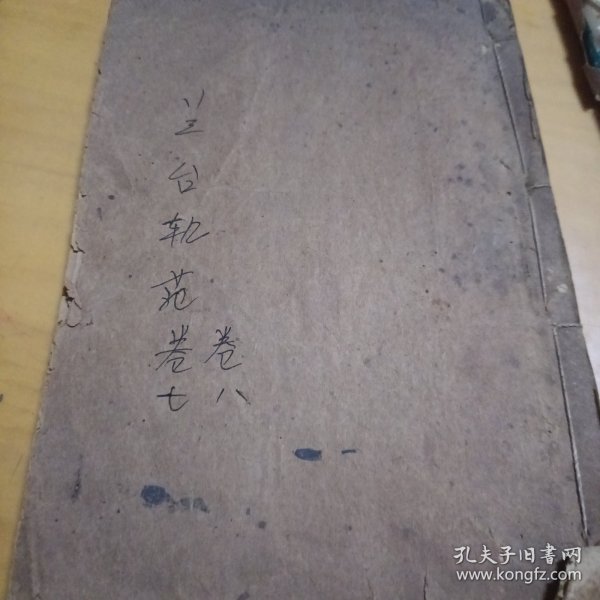 兰台轨范卷七
卷八
孔夫子旧書网
www.kongfz.com